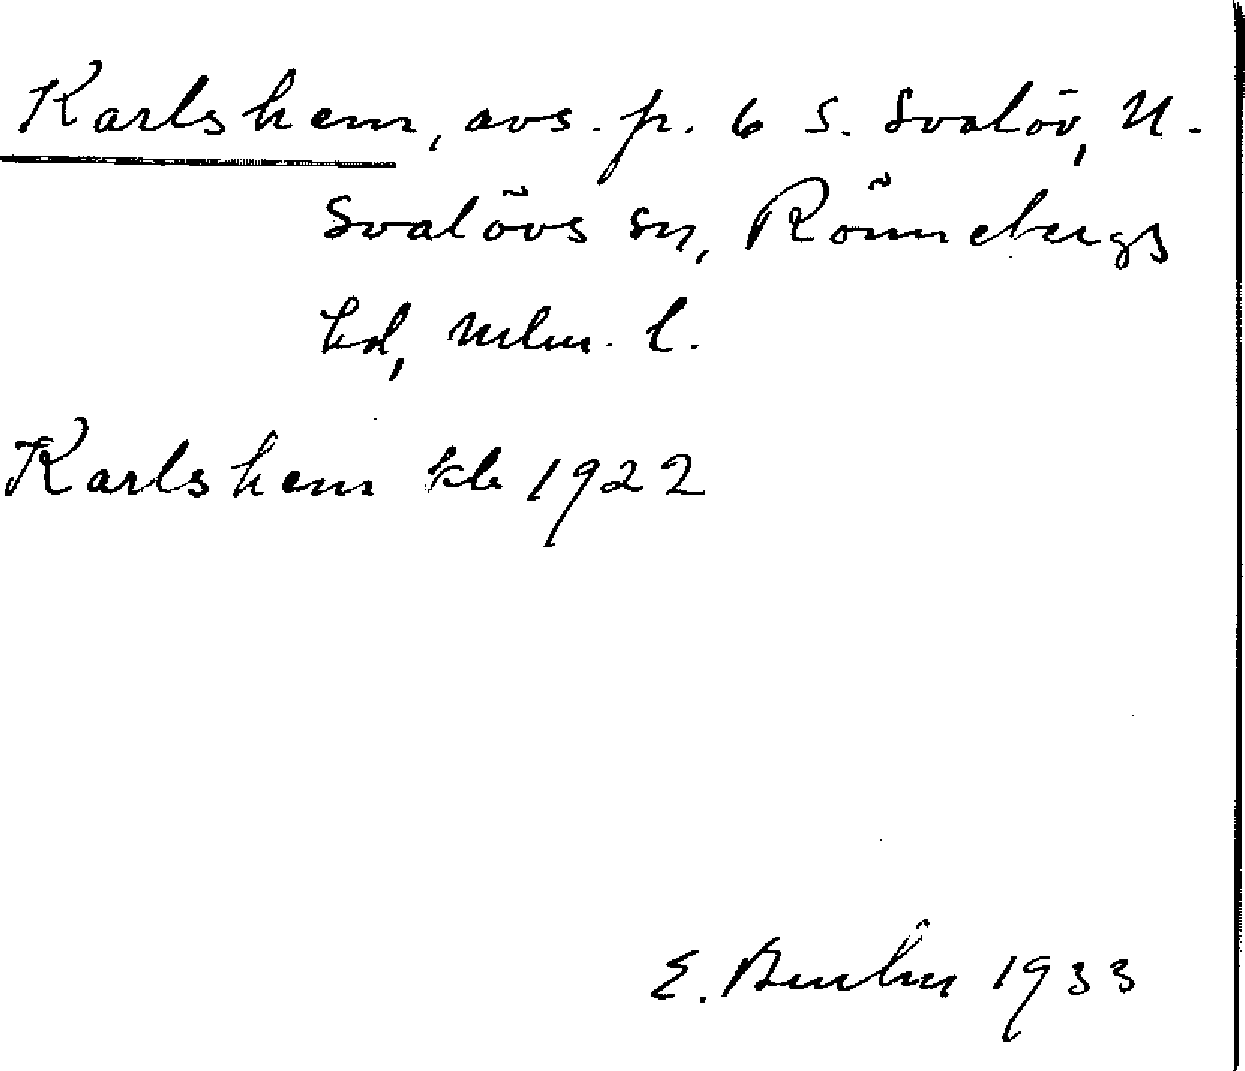 Karlshem, avs. fr. 6 S. Svalöv, N.
Svalövs sn, Rönnebergs
hd, Mlm. l.
Karlshem kb 1922
E. 1933